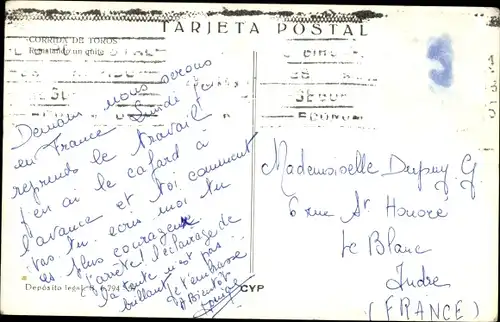 TARJETA POSTAL
CORRIDA DE TOROS
Rematando un quite
Demain nous serons
en France Lundi je
reprends le travail
j'en ai le cafard à
l'avance et toi comment
vas tu. ecris moi tu
es plus courageuse
j'arrete l'éclairage de
la tente n'est pas
brillant. Je t'embrasse
A Bientôt
Mademoiselle Dupuy G
6 rue St Honoré
Le Blanc
Indre
(FRANCE)
Depósito legal B.
CYP